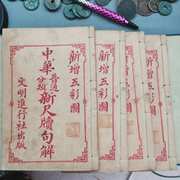 新增五彩圖
中華普通新尺牘句解
文明進行社出版
新增五彩圖
新增五彩圖
新增五彩圖